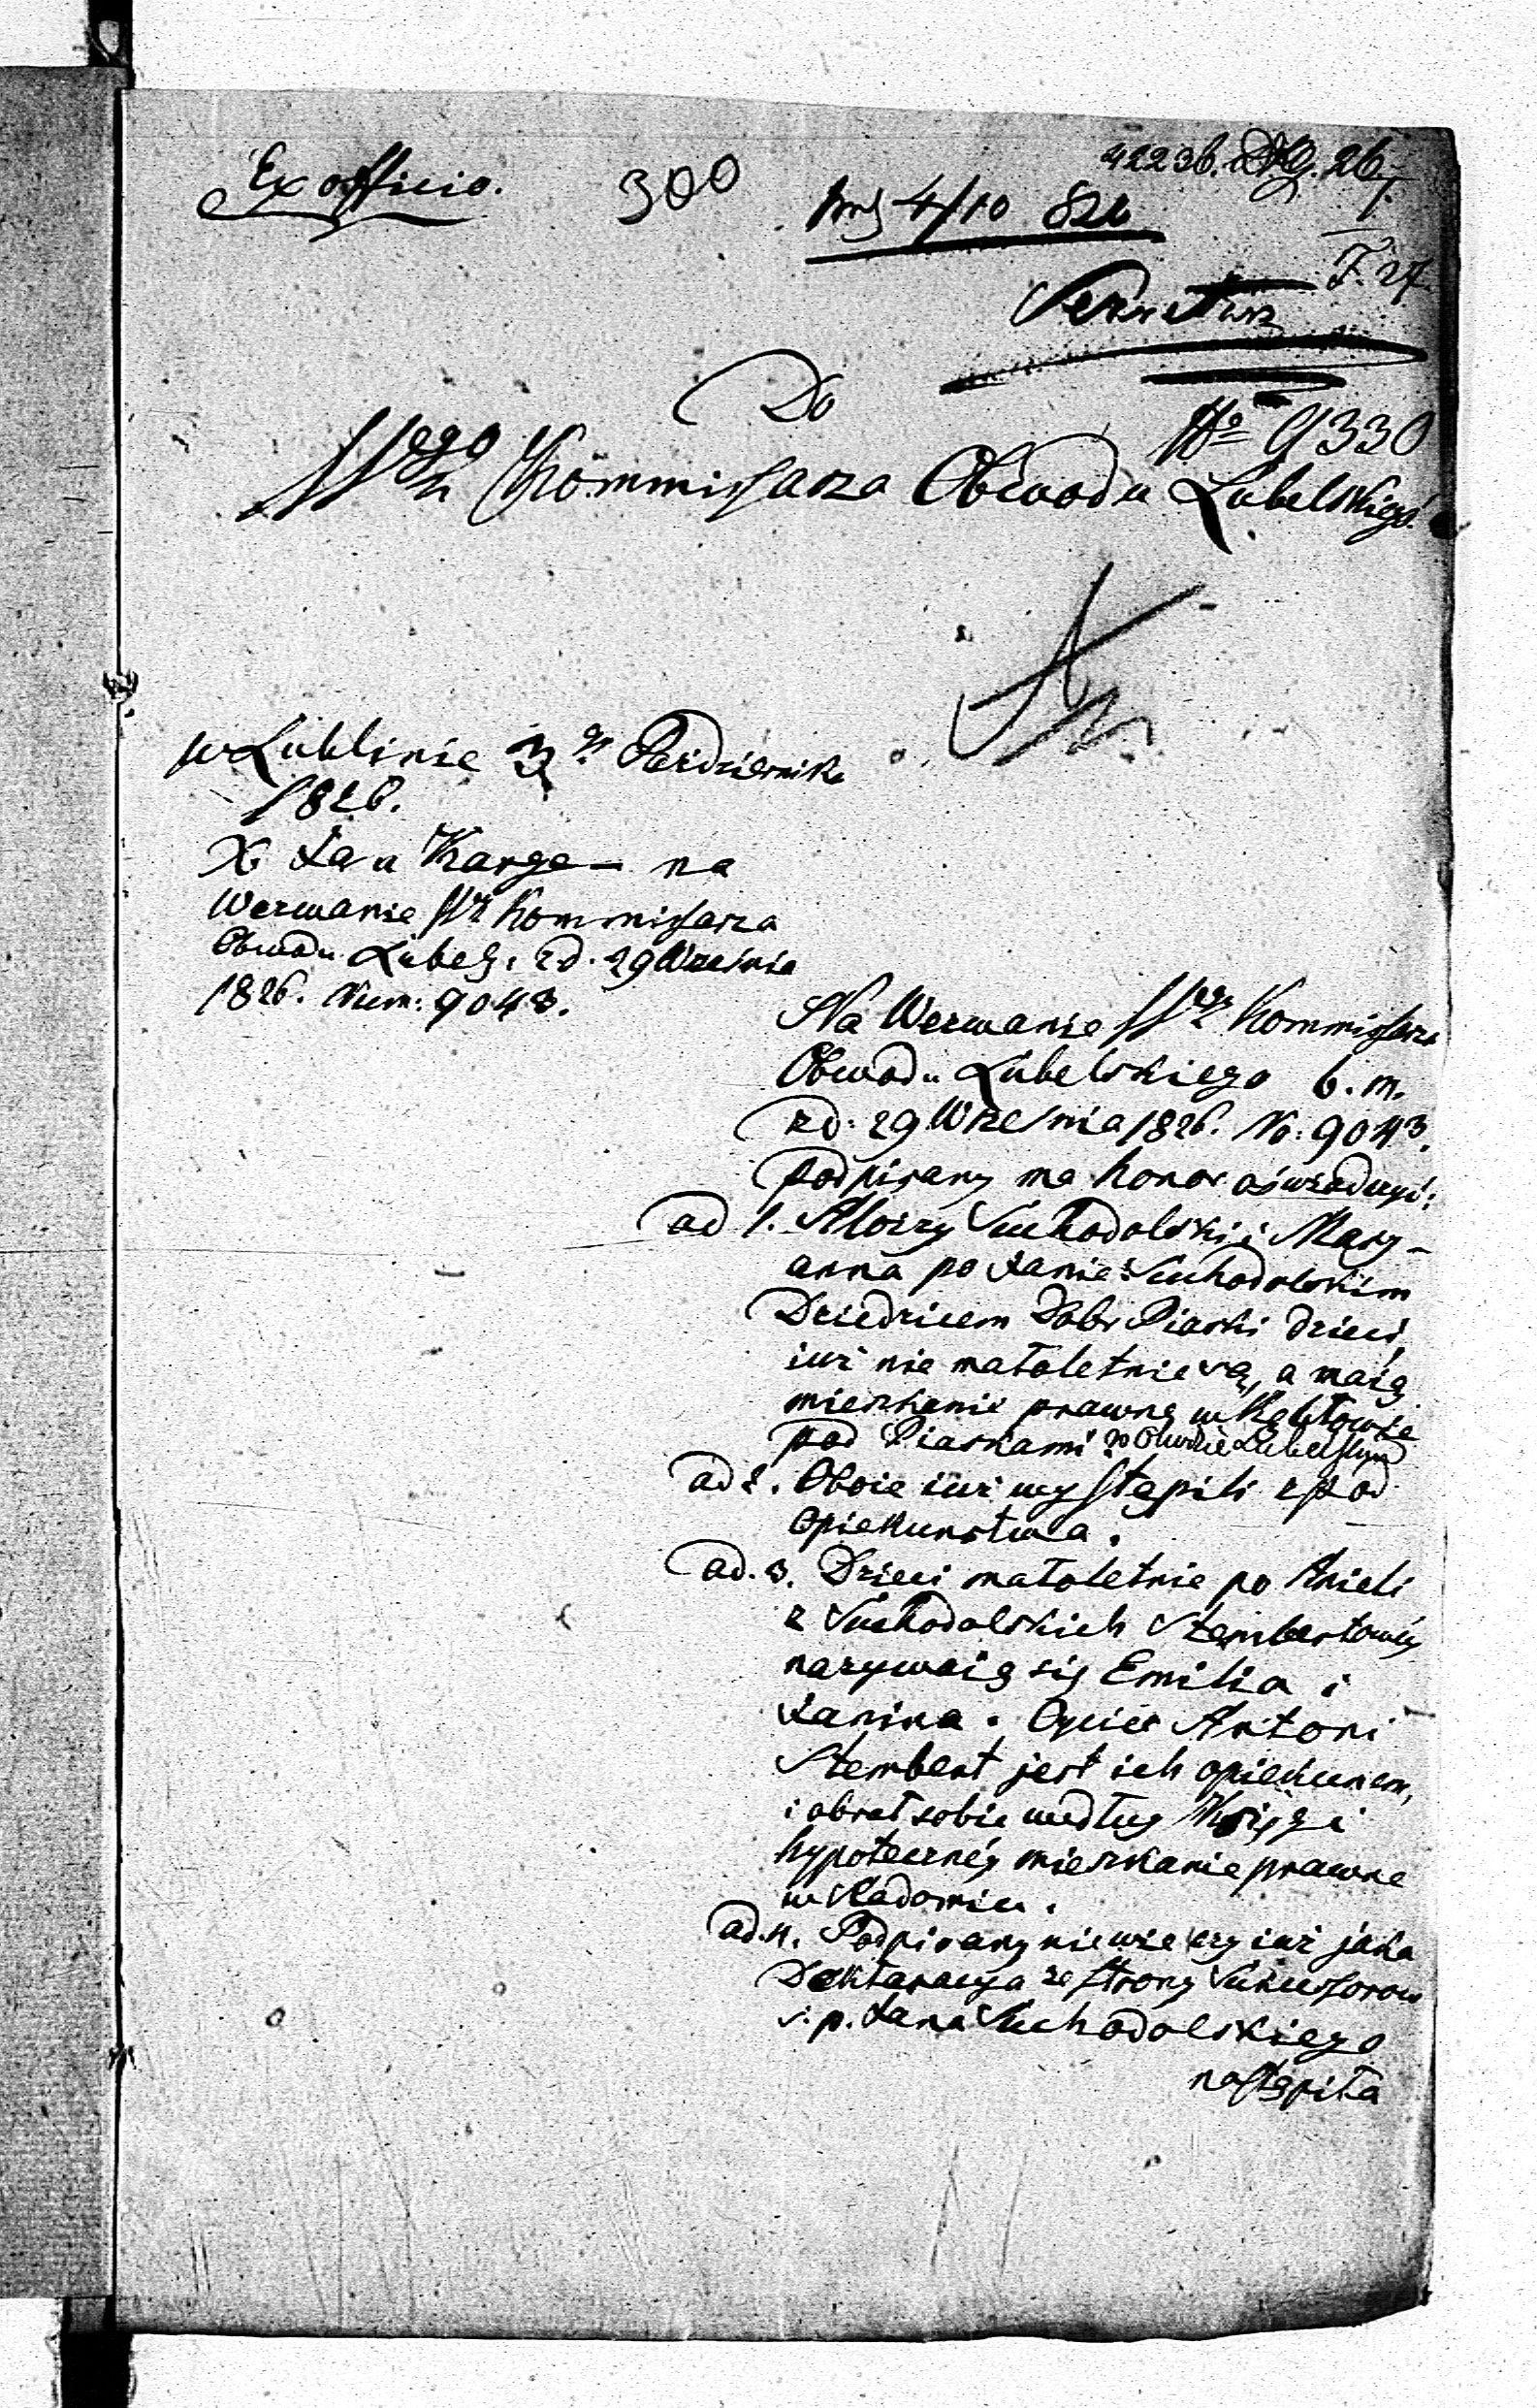 Ex officio.
300
4223b. 26.
4/10 826
F. 27
No 9330
Do
Wgo Kommissarza Obwodu Lubelskiego
w Lublinie 3go Października
1826.
X. Jan Karge na
Wezwanie W. Kommissarza
Obwodu Lubels. z d. 29 Września
1826. Num: 9043.
Na Wezwanie Wgo Kommissarza
Obwodu Lubelskiego b. m.
z d: 29 Września 1826. No: 9043.
podpisany ma honor oświadczyć:
ad 1. Aloizy Suchodolski i Mary-
anna po Janie Suchodolskim
Dziedzicem Dóbr Piaski dzieci,
iuż nie małoletnie są, a maią
mieszkanie prawne w Kębłowie
pod Piaskami w Obwodzie Lubelskym
ad 2. Oboie iuż wystąpili z pod
opiekunstwa.
ad. 3. Dzieci małoletnie po Anieli
z Suchodolskich Stembertowéy
nazywaią się Emilia i
Janina. Oyciec Antoni
Stembert jest ich opiekunem,
i obrał sobie według Księgi
hypotecznéy mieszkanie prawne
w Radomiu.
ad. 4. Podpisany nie wie czy iuż jaka
Deklaracya ze strony Sukcessorow
ś. p. Jana Suchodolskiego
nastąpiła